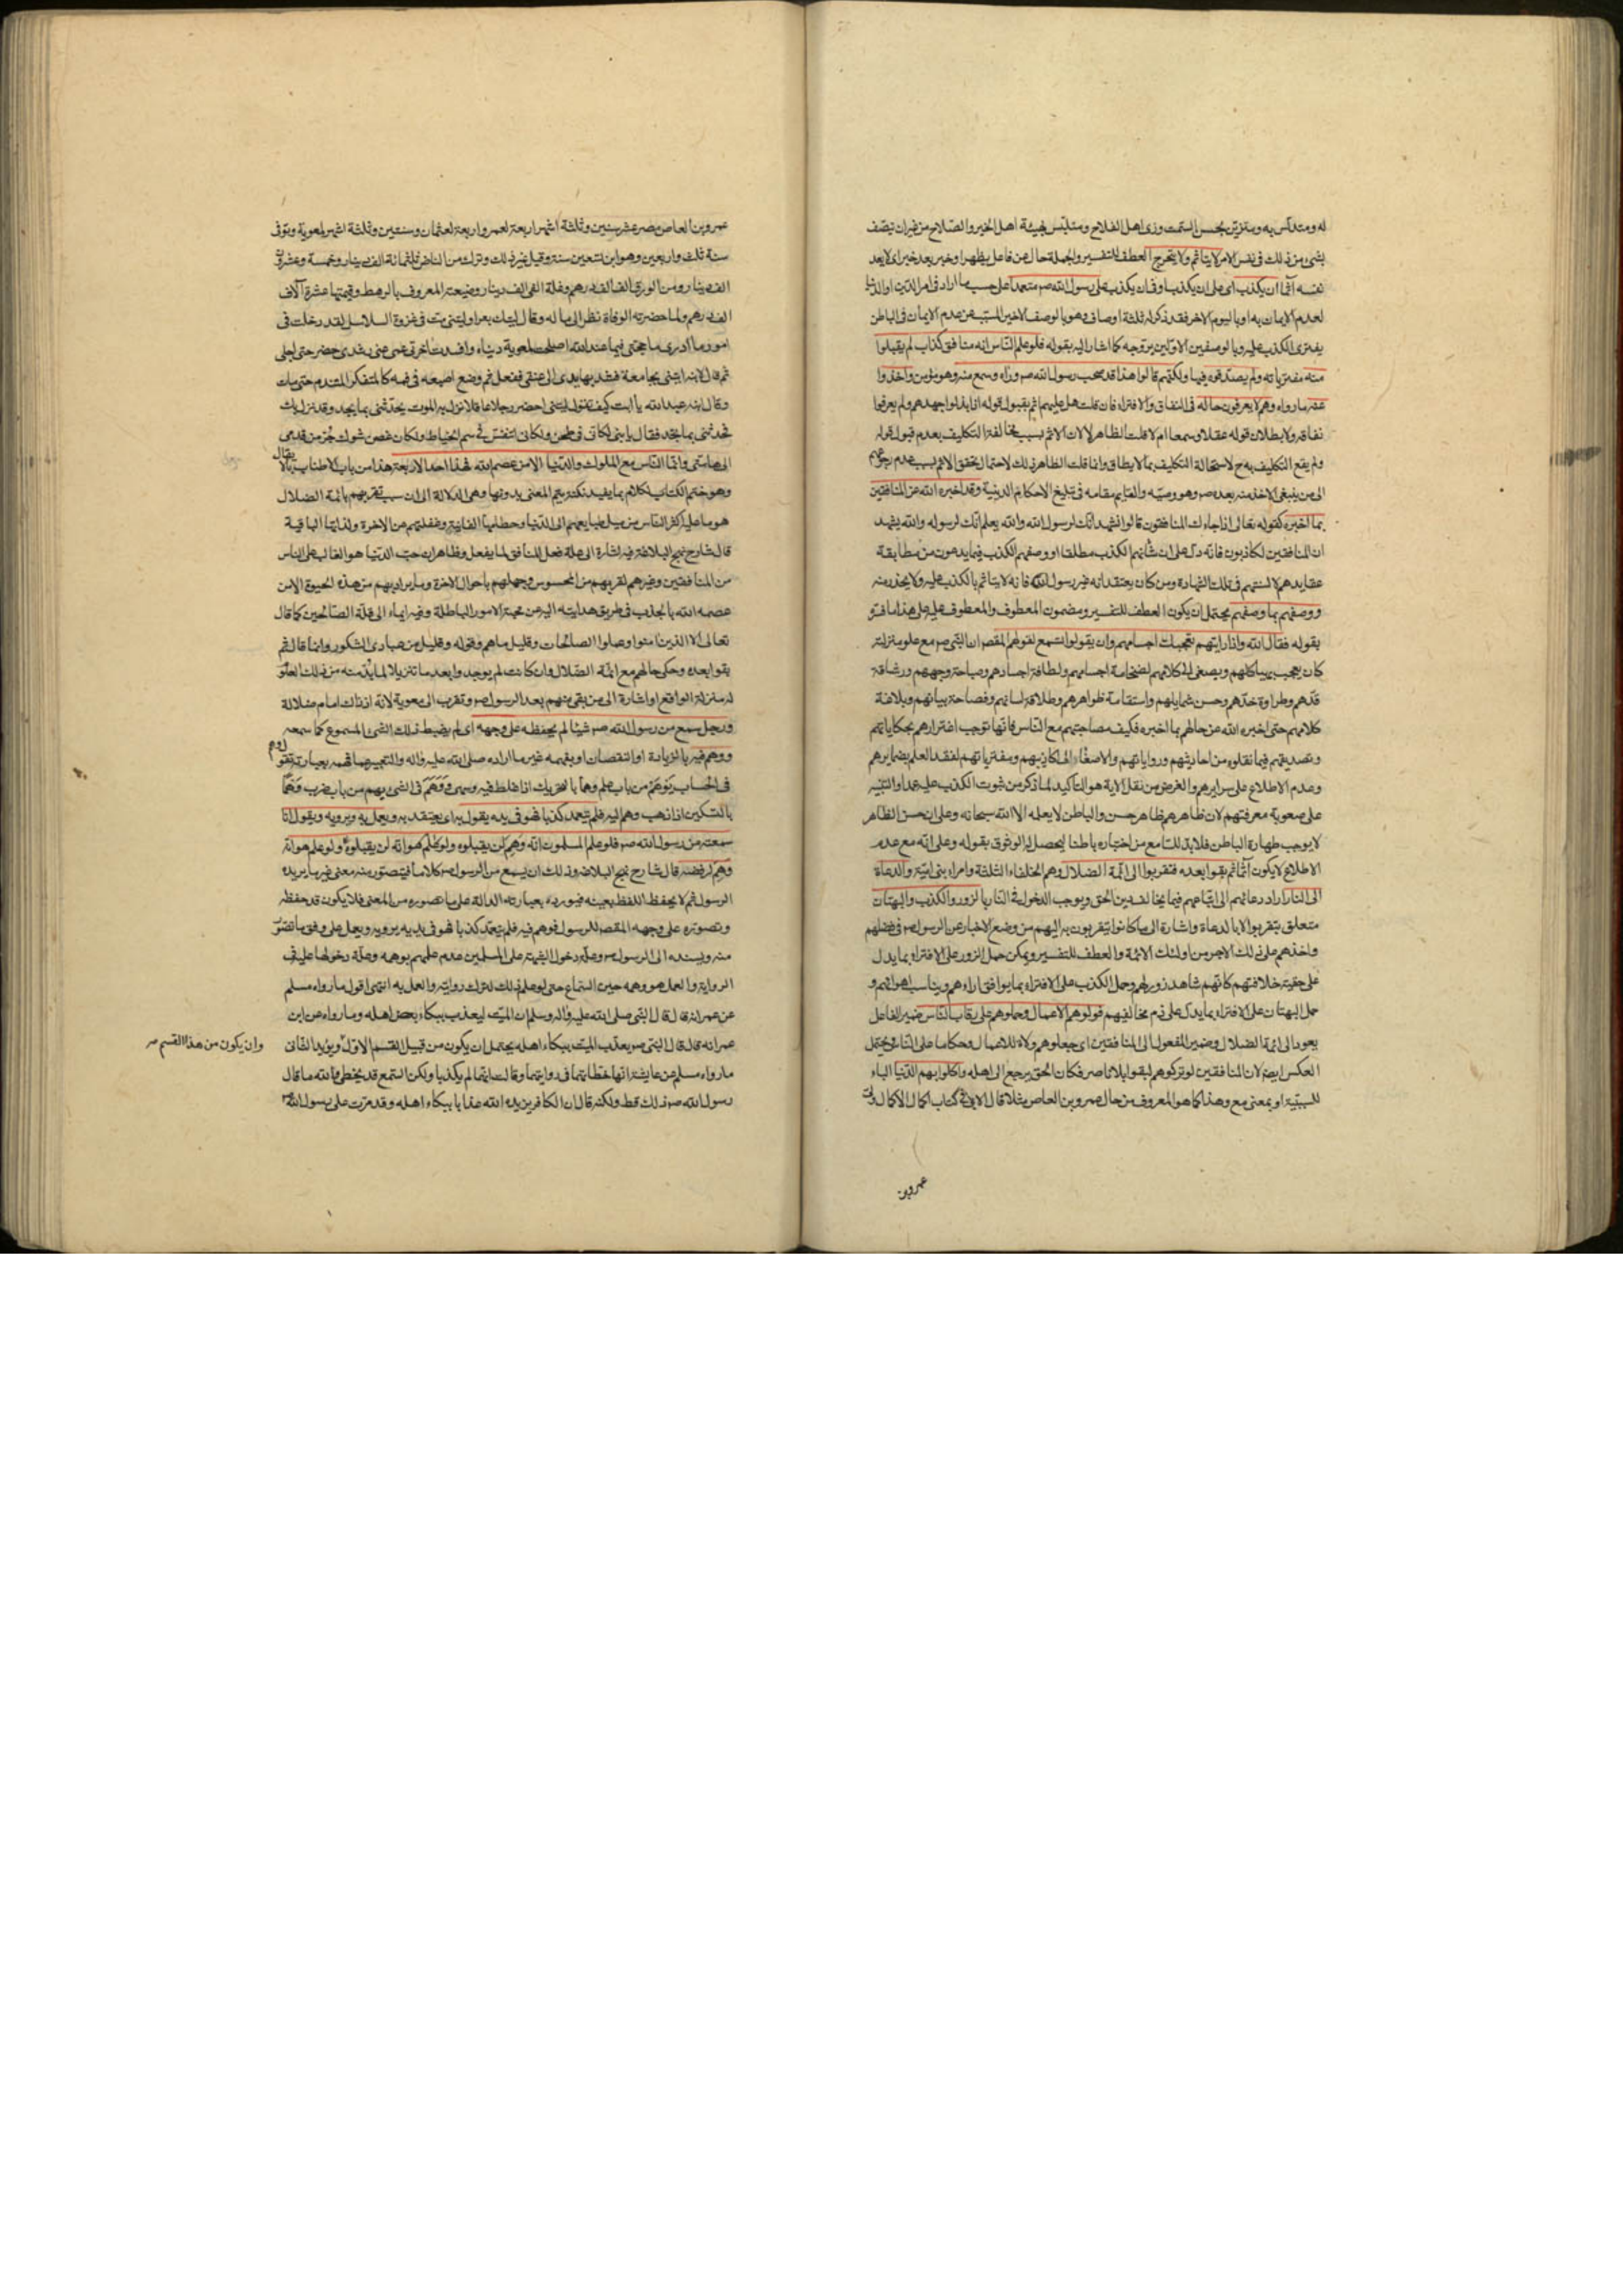 له ومتدلس به ومتزين بحسن السمت وزى اهل الفلاح ومتلبس بهيئة اهل الخير والصلاح من غير ان يتصف
بشئ من ذلك فى نفس الامر لا يتأثم ولا يتحرج العطف للتفسير والجملة حال عن فاعل يظهر او خبر بعد خبر اى لا يعد
نفسه آثما ان يكذب اى على ان يكذب او فى ان يكذب على رسول الله صم متعمدا على حسب ما اراد فى امر الدين او الدنيا
لعدم الايمان به او باليوم الاخر فقد ذكر له ثلثة اوصاف وهو بالوصف الاخير المتسبب عن عدم الايمان فى الباطن
يفترى الكذب عليه وبالوصفين الاولين يروجه كما اشار اليه بقوله فلو علم الناس انه منافق كذاب لم يقبلوا
منه مفترياته ولم يصدقوه فيها ولكنهم قالوا هذا قد صحب رسول الله صم وراه وسمع منه وهو مؤمن واخذوا
عنه ما رواه وهم لا يعرفون حاله فى النفاق والافتراء فان قلت هل عليهم اثم بقبول قوله اذا بذلوا جهدهم ولم يعرفوا
نفاقه ولا بطلان قوله عقلا وسمعا ام لا قلت الظاهر لا لان الاثم بسبب مخالفة التكليف بعدم قبول قوله
ولم يقع التكليف به ح لاستحالة التكليف بما لا يطاق وانما قلت الظاهر ذلك لاحتمال تحقق الاثم بسبب عدم رجوعهم
الى من ينبغى الاخذ منه بعده صم وهو وصيه والقايم مقامه فى تبليغ الاحكام الدينية وقد اخبره الله عن المنافقين
بما اخبره كقوله تعالى اذا جاءك المنافقون قالوا نشهد انك لرسول الله والله يعلم انك لرسوله والله يشهد
ان المنافقين لكاذبون فانه دل على ان شأنهم الكذب مطلقا او وصفهم الكذب فيما يدعون من مطابقة
عقايدهم لالسنتهم فى تلك الشهادة ومن كان يعتقد انه غير رسول الله فانه لا يتأثم بالكذب عليه ولا يحذر منه
ووصفهم بما وصفهم يحتمل ان يكون العطف للتفسير ومضمون المعطوف والمعطوف عليه على هذا ما
بقوله فقال الله واذا رايتهم تعجبك اجسامهم وان يقولوا تسمع لقولهم المقصد ان النبى صم مع علو منزلته
كان يعجب بهياكلهم ويصغى الى كلامهم لضخامة اجسامهم ولطافة اجسادهم وصباحة وجههم ورشاقة
قدهم وطراوة خدهم وحسن شمايلهم واستقامة ظواهرهم وطلاقة لسانهم وفصاحة بيانهم وبلاغة
كلامهم حتى اخبره الله عن حالهم بما اخبره فكيف مصاحبتهم مع الناس فانها توجب اغترارهم بحكاياتهم
وتصديقهم فيما نقلوه من احاديثهم ورواياتهم والاصغاء الى اكاذيبهم ومفترياتهم لفقد العلم بضمايرهم
وعدم الاطلاع على سرايرهم والغرض من نقل الاية هو التأكيد لما ذكر من ثبوت الكذب عليه عمدا والتنبيه
على صعوبة معرفتهم لان ظاهرهم ظاهر حسن والباطن لا يعلمه الا الله سبحانه وعلى ان حسن الظاهر
لا يوجب طهارة الباطن فلا بد للسامع من اختباره باطنا ليحصل له الوثوق بقوله وعلى انه مع عدم
الاطلاع لا يكون آثما ثم بقوا بعده فتقربوا الى ائمة الضلال وهم الخلفاء الثلثة وامراء بنى امية والدعاة
الى النار اراد دعائهم الى اتباعهم فيما يخالف دين الحق ويوجب الدخول فى النار بالزور والكذب والبهتان
متعلق بتقربوا لا بالدعاة واشارة الى ما كانوا يتقربون به اليهم من وضع الاخبار عن الرسول صم فى فضلهم
واخذهم على ذلك الاجر من اولئك الائمة والعطف للتفسير ويمكن حمل الزور على الافتراء بما يدل
على حقية خلافتهم كانهم شاهد زور لهم وحمل الكذب على الافتراء بما يوافق اراءهم ويناسب اهوائهم و
حمل البهتان على الافتراء بما يدل على ذم مخالفيهم فولوهم الاعمال وحملوهم على رقاب الناس ضمير الفاعل
يعود الى ائمة الضلال وضمير المفعول الى المنافقين اى جعلوهم ولاة للاعمال وحكاما على الناس ويحتمل
العكس ايضا لان المنافقين لو تركوهم لبقوا بلا ناصر فكان الحق يرجع الى اهله واكلوا بهم الدنيا الباء
للسببية او بمعنى مع وهذا كما هو المعروف من حال عمرو بن العاص مثلا قال الابى فى كتاب اكمال الاكمال ولى
عمرو بن
عمرو بن العاص مصر عشر سنين وثلثة اشهر اربعة لعمر واربعة لعثمان وسنتين وثلثة اشهر لمعوية وتوفى
سنة ثلث واربعين وهو ابن تسعين سنة وقيل غير ذلك وترك من الناض ثلثمائة الف دينار وخمسة وعشرين
الف دينار ومن الورق الف الف درهم وغلة الفى الف دينار وضيعته المعروفة بالرهط وقيمتها عشرة آلاف
الف درهم ولما حضرته الوفاة نظر الى ماله وقال ليتك بعرا وليتنى مت فى غزوة السلاسل لقد دخلت فى
امور ما ادرى ما حجتى فيها عند الله اصلحت لمعوية دنياه وافسدت اخرتى عمى عنى رشدى حضر حتى اجلى
ثم قال لابنه ايتنى بجامعة فشد بها يدى الى عنقى ففعل ثم وضع اصبعه فى فمه كالمتفكر المتندم حتى مات
وقال ابنه عبد الله يا ابت كيف تقول ليتنى احضر رجلا عاقلا نزل به الموت يحدثنى بما يجد وقد نزل بك
فحدثنى بما تجد فقال يا بنى لكانى فى طحن ولكانى اتنفس فى سم الخياط ولكان غصن شوك جر من قدمى
الى هامتى وانما الناس مع الملوك والدنيا الا من عصم الله فهذا احد الاربعة هذا من باب الاطناب يقال
وهو ختم الكتاب لكلام بما يفيد نكتة يتم المعنى بدونها وهى الدلالة الى ان سبب تقربهم بائمة الضلال
هو ما عليه اكثر الناس من ميل طبايعهم الى الدنيا وحطامها الفانية وغفلتهم عن الاخرة ولذاتها الباقية
قال شارح نهج البلاغة فيه اشارة الى علة فعل المنافق لما يفعل وظاهر ان حب الدنيا هو الغالب على الناس
من المنافقين وغيرهم لقربهم من المحسوس وجهلهم باحوال الاخرة وما يراد بهم من هذه الحيوة الا من
عصمه الله بالجذب فى طريق هدايته اليه عن محبة الامور الباطلة وفيه ايماء الى قلة الصالحين كما قال
تعالى الا الذين امنوا وعملوا الصالحات وقليل ما هم وقوله وقليل من عبادى الشكور وانما قال ثم
بقوا بعده وحكى حالهم مع ائمة الضلال وان كانت لم يوجد وابعد ما تنزيلا لما بد منه من ذلك
له منزلة الواقع او اشارة الى من بقى منهم بعد الرسول صم وتقرب الى معوية لانه اذ ذاك امام ضلالة
ورجل سمع من رسول الله صم شيئا لم يحفظه على وجهه اى لم يضبط ذلك الشئ المسموع كما سمعه
ووهم فيه بالزيادة او النقصان او بفهمه غير ما اراده صلى الله عليه واله والتعبير عما فهمه بعبارته تقول وهم
فى الحساب يوهم من باب علم وهما بالتحريك اذا غلط فيه وسهى ووهم فى الشئ يهم من باب ضرب وهما
بالتسكين اذا ذهب وهمه اليه فلم يتعمد كذبا فهو فى يده يقول به اى يعتقد به ويعمل به ويرويه ويقول انا
سمعته من رسول الله صم فلو علم المسلمون انه وهم لن يقبلوه ولو علم هو انه لن يقبلوه ولو علم هو انه
وهم لرفضه قال شارح نهج البلاغة وذلك ان يسمع من الرسول صم كلاما فيتصور منه معنى غير ما يريده
الرسول ثم لا يحفظ اللفظ بعينه فيورده بعبارته الدالة على ما تصوره من المعنى فلا يكون قد حفظه
وتصوره على وجهه المقصد للرسول فوهم فيه فلم يتعمد كذبا فهو فى يديه يرويه ويعمل على وفق ما تصور
منه ويسنده الى الرسول صم وعلة دخول الشبهة على المسلمين عدم علمهم بوهمه وعلة دخولها عليه فى
الرواية والعمل هو وهمه حين السماع حتى لو علم ذلك لترك روايته والعمل به انتهى اقول ما رواه مسلم
عن عمر انه قال قال النبى صلى الله عليه واله وسلم ان الميت ليعذب ببكاء بعض اهله وما رواه عن ابن
عمر انه قال قال النبى صم يعذب الميت ببكاء اهله يحتمل ان يكون من قبيل القسم الاول ويؤيد الثانى
وان يكون من هذا القسم صم
ما رواه مسلم عن عايشة انها خطأتهما فى روايتهما وقالت انهما لم يكذبا ولكن السمع قد يخطى والله ما قال
رسول الله صم ذلك قط ولكنه قال ان الكافر يزيده الله عذابا ببكاء اهله وقد مرت على رسول الله صم